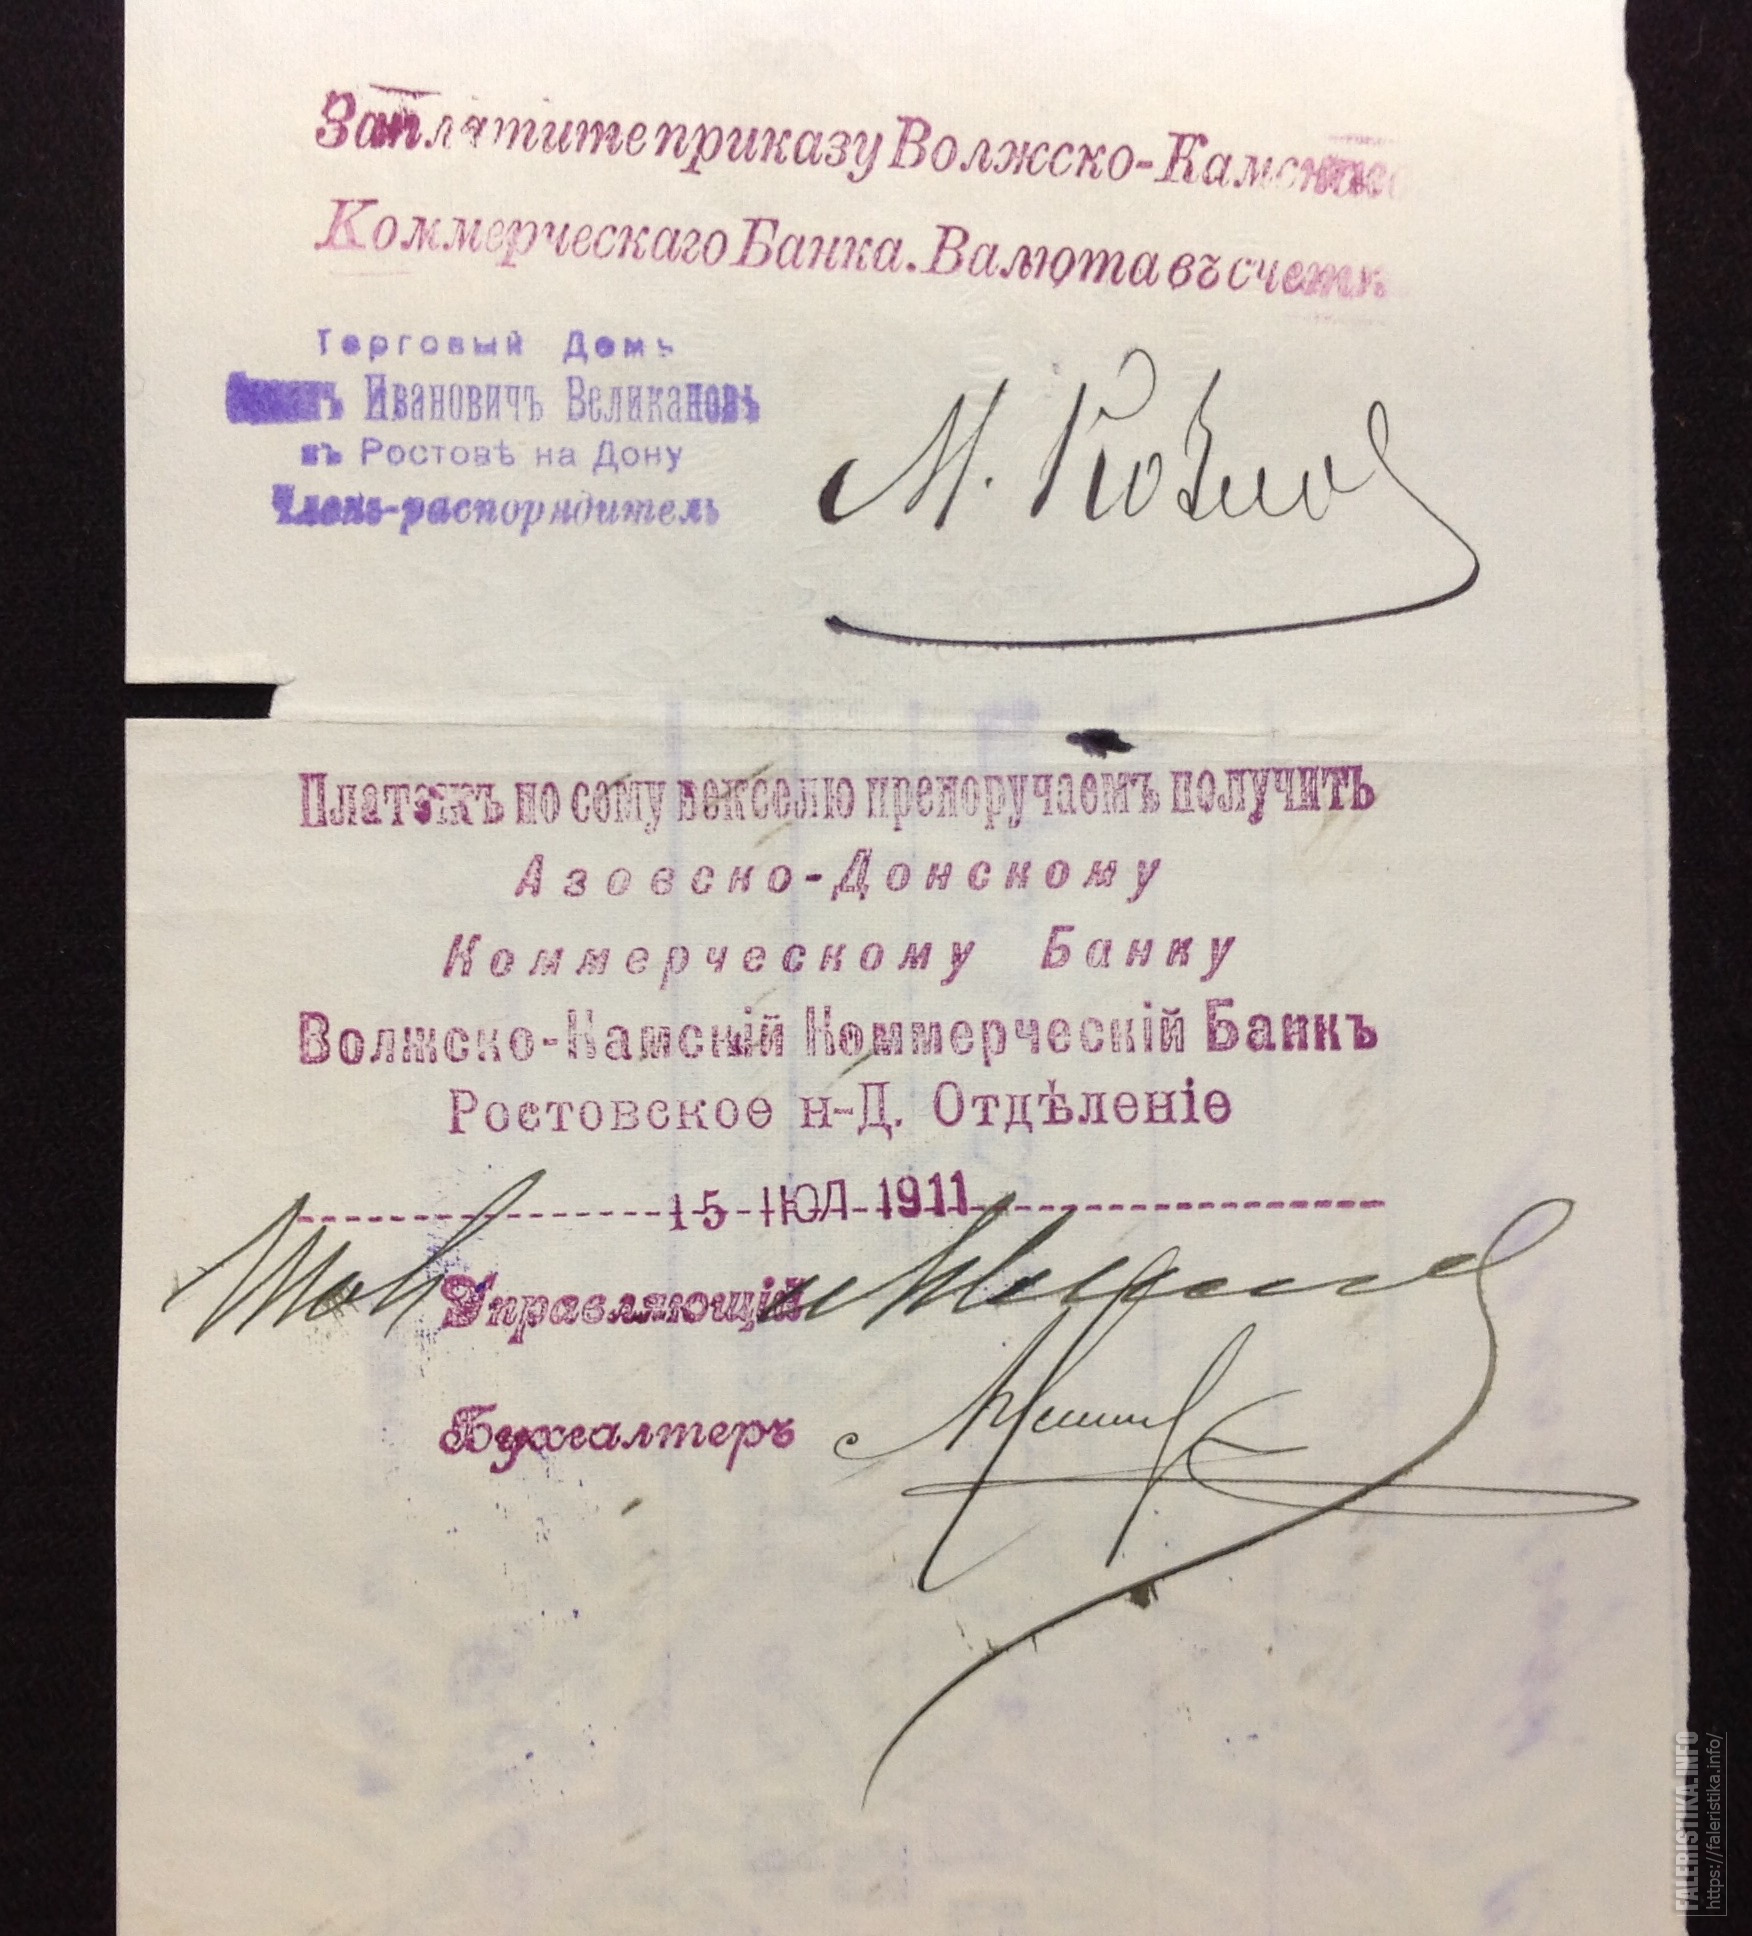 Заплатите приказу Волжско-Камскаго
Коммерческаго Банка. Валюта въ счетѣ
Торговый Домъ
Ивановичъ Великановъ
въ Ростовѣ на Дону
Членъ-распорядитель
М. Козлов
Платежъ по сему векселю препоручаемъ получить
Азовско-Донскому
Коммерческому Банку
Волжско-Камскій Коммерческій Банкъ
Ростовское н-Д. Отдѣленіе
15 ІЮЛ 1911
Управляющій
Бухгалтеръ
FALERISTIKA.INFO
https://faleristika.info/